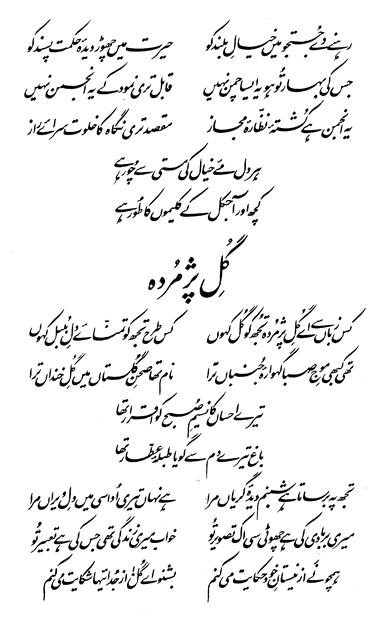 رہنے دے جستجو میں خیالِ بلند کو حیرت میں چھوڑ دیدۂ حکمت پسند کو
جس کی بہار تُو ہو یہ ایسا چمن نہیں قابل تری نمود کے یہ انجمن نہیں
یہ انجمن ہے کُشتۂ نظّارۂ مجاز مقصد تری نگاہ کا خلوت سرائے راز
ہر دل مئے خیال کی مستی سے چُور ہے
کچھ اور آجکل کے کلیموں کا طُور ہے
گُلِ پژمُردہ
کس زباں سے اے گُلِ پژمُردہ تجھ کو گُل کہوں کس طرح تجھ کو تمنّائے دلِ بُلبل کہوں
تھی کبھی موجِ صبا گہوارۂ جُنباں ترا نام تھا صحنِ گُلستاں میں گُلِ خنداں ترا
تیرے احساں کا نسیمِ صُبح کو اقرار تھا
باغ تیرے دم سے گویا طبلۂ عطّار تھا
تجھ پہ برساتا ہے شبنم دیدۂ گریاں مرا ہے نہاں تیری اُداسی میں دلِ ویراں مرا
میری بربادی کی ہے چھوٹی سی اک تصویر تُو خواب میری زندگی تھی جس کی ہے تعبیر تُو
ہمچو نَے از نیستانِ خود حکایت می کنم بشنو اے گُل! از جُدائیہا شکایت می کنم